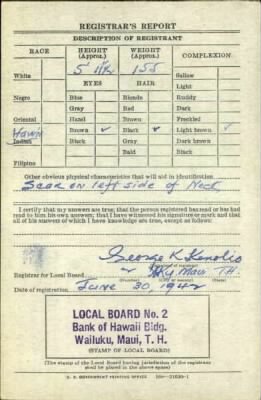 REGISTRAR'S REPORT
DESCRIPTION OF REGISTRANT
RACE HEIGHT (Approx.) WEIGHT (Approx.) COMPLEXION
5' 155
White Sallow
EYES HAIR Light
Negro Blue Blonde Ruddy
Gray Red Dark
Oriental Hazel Brown Freckled
Brown ✓ Black ✓ Light brown ✓
Indian Black Gray Dark brown
Bald Black
Filipino
Other obvious physical characteristics that will aid in identification
Scar on left side of Neck
I certify that my answers are true; that the person registered has read or has had
read to him his own answers; that I have witnessed his signature or mark and that
all of his answers of which I have knowledge are true, except as follows:
George K
Registrar for Local Board 2 Maui T.H.
Date of registration June 30, 1942
LOCAL BOARD No. 2
Bank of Hawaii Bldg.
Wailuku, Maui, T. H.
(STAMP OF LOCAL BOARD)
(The stamp of the Local Board having jurisdiction of the registrant
shall be placed in the above space)
U. S. GOVERNMENT PRINTING OFFICE 16—21630-1